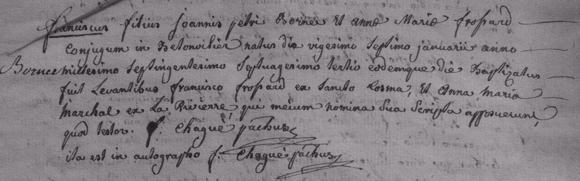 Franciscus filius Joannis petri Borne et annæ Mariæ fropard
Conjugum in Betonvilier natus die vigesimo septimo januarii anno
Borne millesimo septingentesimo septuagesimo tertio eodemque die Baptizatus
fuit Levantibus francisco fropard ex Sancto Cosma, et anna maria
marchal ex La Rivierre, qui mecum nomina Sua Scripta apposuerunt,
quod testor. f. Chagué pachus
ita est in autographo f. Chagué pachus